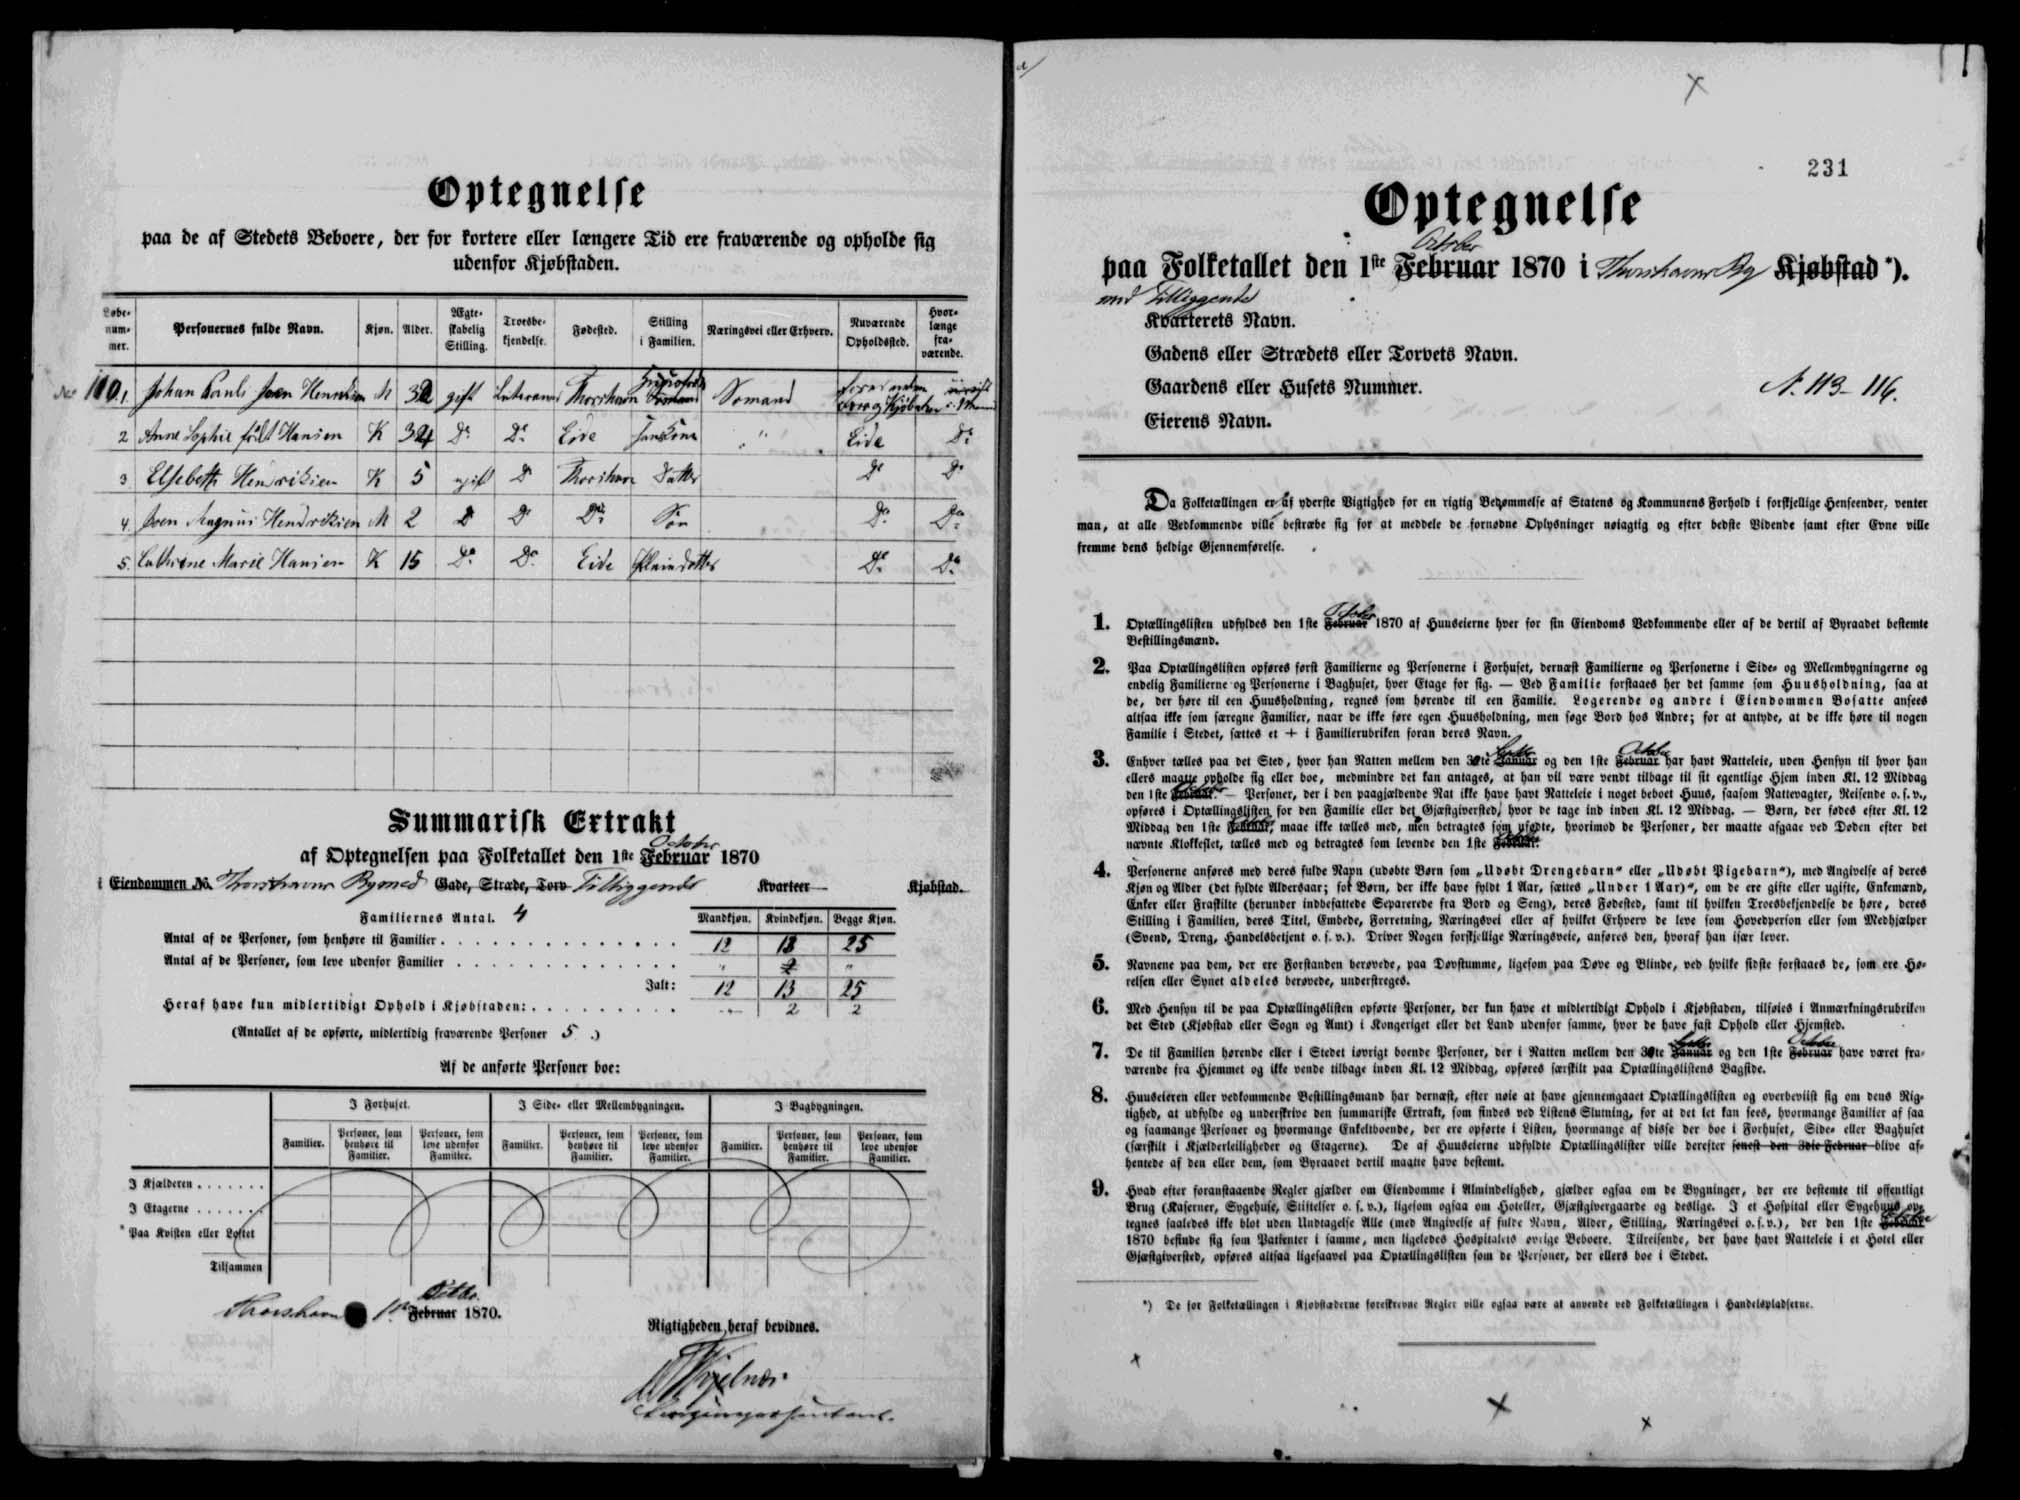 Optegnelse
paa de af Stedets Beboere, der for kortere eller længere Tid ere fraværende og opholde sig
udenfor Kjøbstaden.
Løbe-
num-
mer.
Personernes fulde Navn.
Kjøn.
Alder.
Ægte-
skabelig
Stilling.
Troesbe-
kjendelse.
Fødested.
Stilling
i Familien.
Næringsvei eller Erhverv.
Nuværende
Opholdssted.
Hvor-
længe
fra-
værende.
110. 1. Johan Pauli Joen Henriksen M 32 gift Lutheraner Thorshavn Sømand
2 Anne Sophie født Hansen K 34 Do Do Eide hans Kone " Eide Do
3 Elsebeth Henriksen K 5 ugift Do Thorshavn Datter Do Do
4. Joen Magnus Hendriksen M 2 Do Do Do Søn Do Do
5. Cathrine Marie Hansen K 15 Do Do Eide Pleiedatter Do Do
Summarisk Extrakt
October
af Optegnelsen paa Folketallet den 1ste Februar 1870
i Eiendommen No. Thorshavns By med Gade, Stræde, Torv Tilliggende Kvarteer Kjøbstad.
Familiernes Antal. 4
Mandkjøn. Kvindekjøn. Begge Kjøn.
Antal af de Personer, som henhøre til Familier 12 13 25
Antal af de Personer, som leve udenfor Familier " "
Ialt: 12 13 25
Heraf have kun midlertidigt Ophold i Kjøbstaden: — 2 2
(Antallet af de opførte, midlertidig fraværende Personer 5 .)
Af de anførte Personer boe:
I Forhuset. I Side- eller Mellembygningen. I Bagbygningen.
Familier. Personer, som henhøre til Familier. Personer, som leve udenfor Familier. Familier. Personer, som henhøre til Familier. Personer, som leve udenfor Familier. Familier. Personer, som henhøre til Familier. Personer, som leve udenfor Familier.
I Kjælderen
I Etagerne
Paa Kvisten eller Loftet
Tilsammen
Octbr.
Thorshavn 1ste Februar 1870.
Rigtigheden heraf bevidnes.
231
Optegnelse
October
paa Folketallet den 1ste Februar 1870 i Thorshavns By Kjøbstad*).
med Tilliggende
Kvarterets Navn.
Gadens eller Strædets eller Torvets Navn.
Gaardens eller Husets Nummer. N. 113-116.
Eierens Navn.
Da Folketællingen er af yderste Vigtighed for en rigtig Bedømmelse af Statens og Kommunens Forhold i forskjellige Henseender, venter
man, at alle Vedkommende ville bestræbe sig for at meddele de fornødne Oplysninger nøiagtig og efter bedste Vidende samt efter Evne ville
fremme dens heldige Gjennemførelse.
October
1. Optællingslisten udfyldes den 1ste Februar 1870 af Huuseierne hver for sin Eiendoms Vedkommende eller af de dertil af Byraadet bestemte
Bestillingsmænd.
2. Paa Optællingslisten opføres først Familierne og Personerne i Forhuset, dernæst Familierne og Personerne i Side- og Mellembygningerne og
endelig Familierne og Personerne i Baghuset, hver Etage for sig. — Ved Familie forstaaes her det samme som Huusholdning, saa at
de, der høre til een Huusholdning, regnes som hørende til een Familie. Logerende og andre i Eiendommen Bosatte ansees
altsaa ikke som særegne Familier, naar de ikke føre egen Huusholdning, men søge Bord hos Andre; for at antyde, at de ikke høre til nogen
Familie i Stedet, sættes et + i Familierubriken foran deres Navn.
Septbr October
3. Enhver tælles paa det Sted, hvor han Natten mellem den 30te Januar og den 1ste Februar har havt Natteleie, uden Hensyn til hvor han
ellers maatte opholde sig eller boe, medmindre det kan antages, at han vil være vendt tilbage til sit egentlige Hjem inden Kl. 12 Middag
den 1ste Februar. — Personer, der i den paagjældende Nat ikke have havt Natteleie i noget beboet Huus, saasom Nattevagter, Reisende o. s. v.,
opføres i Optællingslisten for den Familie eller det Gjæstgiversted, hvor de tage ind inden Kl. 12 Middag. — Børn, der fødes efter Kl. 12
Middag den 1ste Februar, maae ikke tælles med, men betragtes som ufødte, hvorimod de Personer, der maatte afgaae ved Døden efter det
nævnte Klokkeslet, tælles med og betragtes som levende den 1ste Februar.
4. Personerne anføres med deres fulde Navn (udøbte Børn som „Udøbt Drengebarn" eller „Udøbt Pigebarn"), med Angivelse af deres
Kjøn og Alder (det fyldte Aldersaar; for Børn, der ikke have fyldt 1 Aar, sættes „Under 1 Aar)", om de ere gifte eller ugifte, Enkemænd,
Enker eller Fraskilte (herunder indbefattede Separerede fra Bord og Seng), deres Fødested, samt til hvilken Troesbekjendelse de høre, deres
Stilling i Familien, deres Titel, Embede, Forretning, Næringsvei eller af hvilket Erhverv de leve som Hovedperson eller som Medhjælper
(Svend, Dreng, Handelsbetjent o. s. v.). Driver Nogen forskjellige Næringsveie, anføres den, hvoraf han især lever.
5. Navnene paa dem, der ere Forstanden berøvede, paa Døvstumme, ligesom paa Døve og Blinde, ved hvilke sidste forstaaes de, som ere Hø-
relsen eller Synet aldeles berøvede, understreges.
6. Med Hensyn til de paa Optællingslisten opførte Personer, der kun have et midlertidigt Ophold i Kjøbstaden, tilføies i Anmærkningsrubriken
det Sted (Kjøbstad eller Sogn og Amt) i Kongeriget eller det Land udenfor samme, hvor de have fast Ophold eller Hjemsted.
Septbr October
7. De til Familien hørende eller i Stedet iøvrigt boende Personer, der i Natten mellem den 30te Januar og den 1ste Februar have været fra-
værende fra Hjemmet og ikke vende tilbage inden Kl. 12 Middag, opføres særskilt paa Optællingslistens Bagside.
8. Huuseieren eller vedkommende Bestillingsmand har dernæst, efter nøie at have gjennemgaaet Optællingslisten og overbeviist sig om dens Rig-
tighed, at udfylde og underskrive den summariske Extrakt, som findes ved Listens Slutning, for at det let kan sees, hvormange Familier af saa
og saamange Personer og hvormange Enkeltboende, der ere opførte i Listen, hvormange af disse der boe i Forhuset, Side- eller Baghuset
(særskilt i Kjælderleiligheder og Etagerne). De af Huuseierne udfyldte Optællingslister ville derefter senest den 3die Februar blive af-
hentede af den eller dem, som Byraadet dertil maatte have bestemt.
9. Hvad efter foranstaaende Regler gjælder om Eiendomme i Almindelighed, gjælder ogsaa om de Bygninger, der ere bestemte til offentligt
Brug (Kaserner, Sygehuse, Stiftelser o. s. v.), ligesom ogsaa om Hoteller, Gjæstgivergaarde og deslige. I et Hospital eller Sygehuus op-
tegnes saaledes ikke blot uden Undtagelse Alle (med Angivelse af fulde Navn, Alder, Stilling, Næringsvei o. s. v.), der den 1ste Februar
1870 befinde sig som Patienter i samme, men ligeledes Hospitalets øvrige Beboere. Tilreisende, der have havt Natteleie i et Hotel eller
Gjæstgiversted, opføres altsaa ligesaavel paa Optællingslisten som de Personer, der ellers boe i Stedet.
*) De for Folketællingen i Kjøbstæderne foreskrevne Regler ville ogsaa være at anvende ved Folketællingen i Handelspladserne.